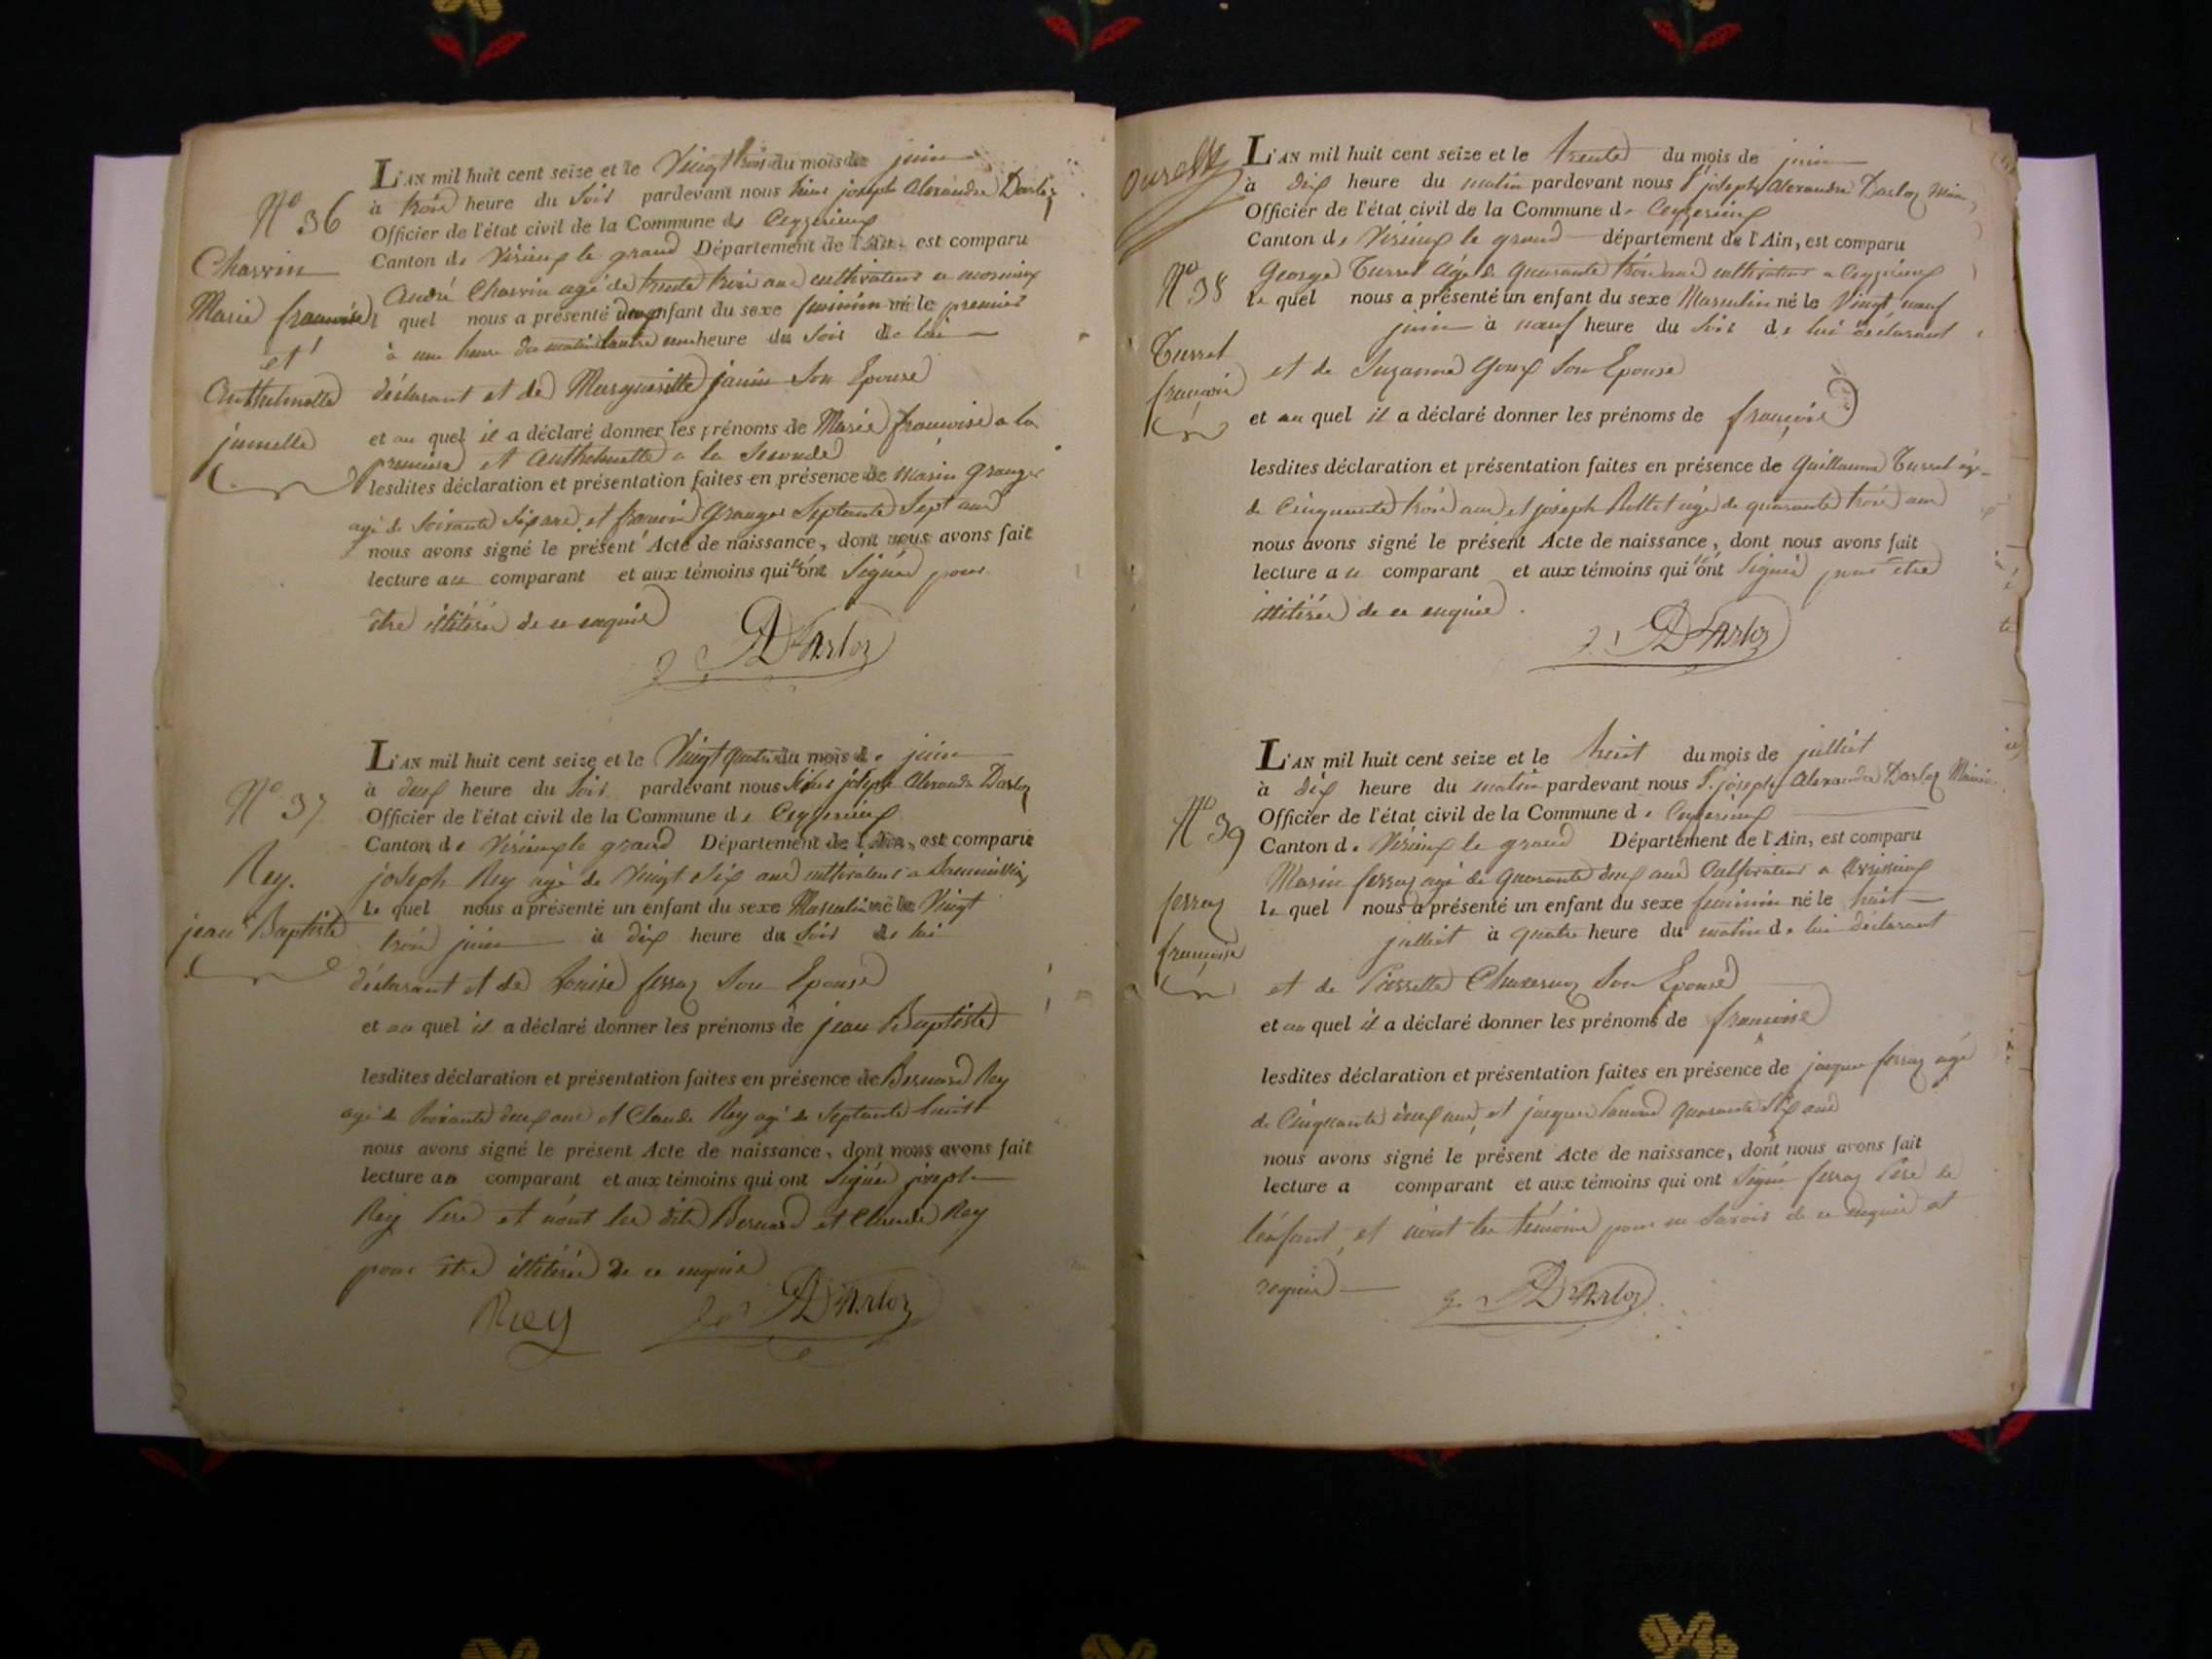 N.o 36
Charvin
Marie françoise
et
Anthelmette
jumelle
L'AN mil huit cent seize et le Vingt trois du mois de juin
à trois heure du Soir pardevant nous Sieur joseph Alexandre Darloz
Officier de l'état civil de la Commune de Ceyzerieux
Canton de Virieux le grand Département de l'Ain, est comparu
André Charvin agé de trente trois ans cultivateur a
quel nous a présenté un enfant du sexe feminin né le premier
à une heure du matin heure du Soir de lui
déclarant et de Margueritte janin Son Epouse
et au quel il a déclaré donner les prénoms de Marie françoise a la
premiere et Anthelmette a la Seconde
lesdites déclaration et présentation faites en présence de Marin Granger
agé de Soixante Six ans et françois Granger Septante Sept ans
nous avons signé le présent Acte de naissance, dont nous avons fait
lecture au comparant et aux témoins qui n'ont Signés pour
être illitérés de ce enquis
DArloz
N.o 37
Rey.
jean Baptiste
L'AN mil huit cent seize et le Vingt quatre du mois de juin
à deux heure du Soir pardevant nous Sieur joseph Alexandre Darloz
Officier de l'état civil de la Commune de Ceyzerieux
Canton de Virieux le grand Département de l'Ain, est comparu
joseph Rey agé de Vingt Six ans cultivateur a
le quel nous a présenté un enfant du sexe Masculin né le Vingt
trois juin à dix heure du Soir de lui
déclarant et de Louise ferraz Son Epouse
et au quel il a déclaré donner les prénoms de jean Baptiste
lesdites déclaration et présentation faites en présence de Bernard Rey
agé de Soixante deux ans et Claude Rey agé de Septante huit
nous avons signé le présent Acte de naissance, dont nous avons fait
lecture au comparant et aux témoins qui ont Signés joseph
Rey Pere et n'ont les dits Bernard et Claude Rey
pour être illitérés de ce enquis
Rey DArloz
L'AN mil huit cent seize et le trente du mois de juin
à dix heure du matin pardevant nous S. joseph Alexandre Darloz Maire
Officier de l'état civil de la Commune de Ceyzerieux
Canton de Virieux le grand département de l'Ain, est comparu
N.o 38
Turrel
françois
George Turrel Agé de quarante trois ans cultivateur a Ceyzerieux
le quel nous a présenté un enfant du sexe Masculin né le Vingt neuf
juin à neuf heure du Soir de lui déclarant
et de Suzanne Goux Son Epouse
et au quel il a déclaré donner les prénoms de françois
lesdites déclaration et présentation faites en présence de Guillaume Turrel agé
de Cinquante trois ans et joseph agé de quarante trois ans
nous avons signé le présent Acte de naissance, dont nous avons fait
lecture au comparant et aux témoins qui n'ont Signés pour être
illitérés de ce enquis.
DArloz
N.o 39
ferraz
françoise
L'AN mil huit cent seize et le huit du mois de juilliet
à dix heure du matin pardevant nous S. joseph Alexandre Darloz Maire
Officier de l'état civil de la Commune de Ceyzerieux
Canton de Virieux le grand Département de l'Ain, est comparu
Marin ferraz agé de quarante deux ans Cultivateur a
le quel nous a présenté un enfant du sexe feminin né le huit
juilliet à quatre heure du matin de lui déclarant
et de Pierrette Son Epouse
et au quel il a déclaré donner les prénoms de françoise
lesdites déclaration et présentation faites en présence de jacques ferraz agé
de Cinquante deux ans, et jacques quarante Six ans
nous avons signé le présent Acte de naissance, dont nous avons fait
lecture a comparant et aux témoins qui ont Signé ferraz Pere de
l'enfant, et n'ont les témoins pour ne Savoir de ce enquis et
requis
DArloz